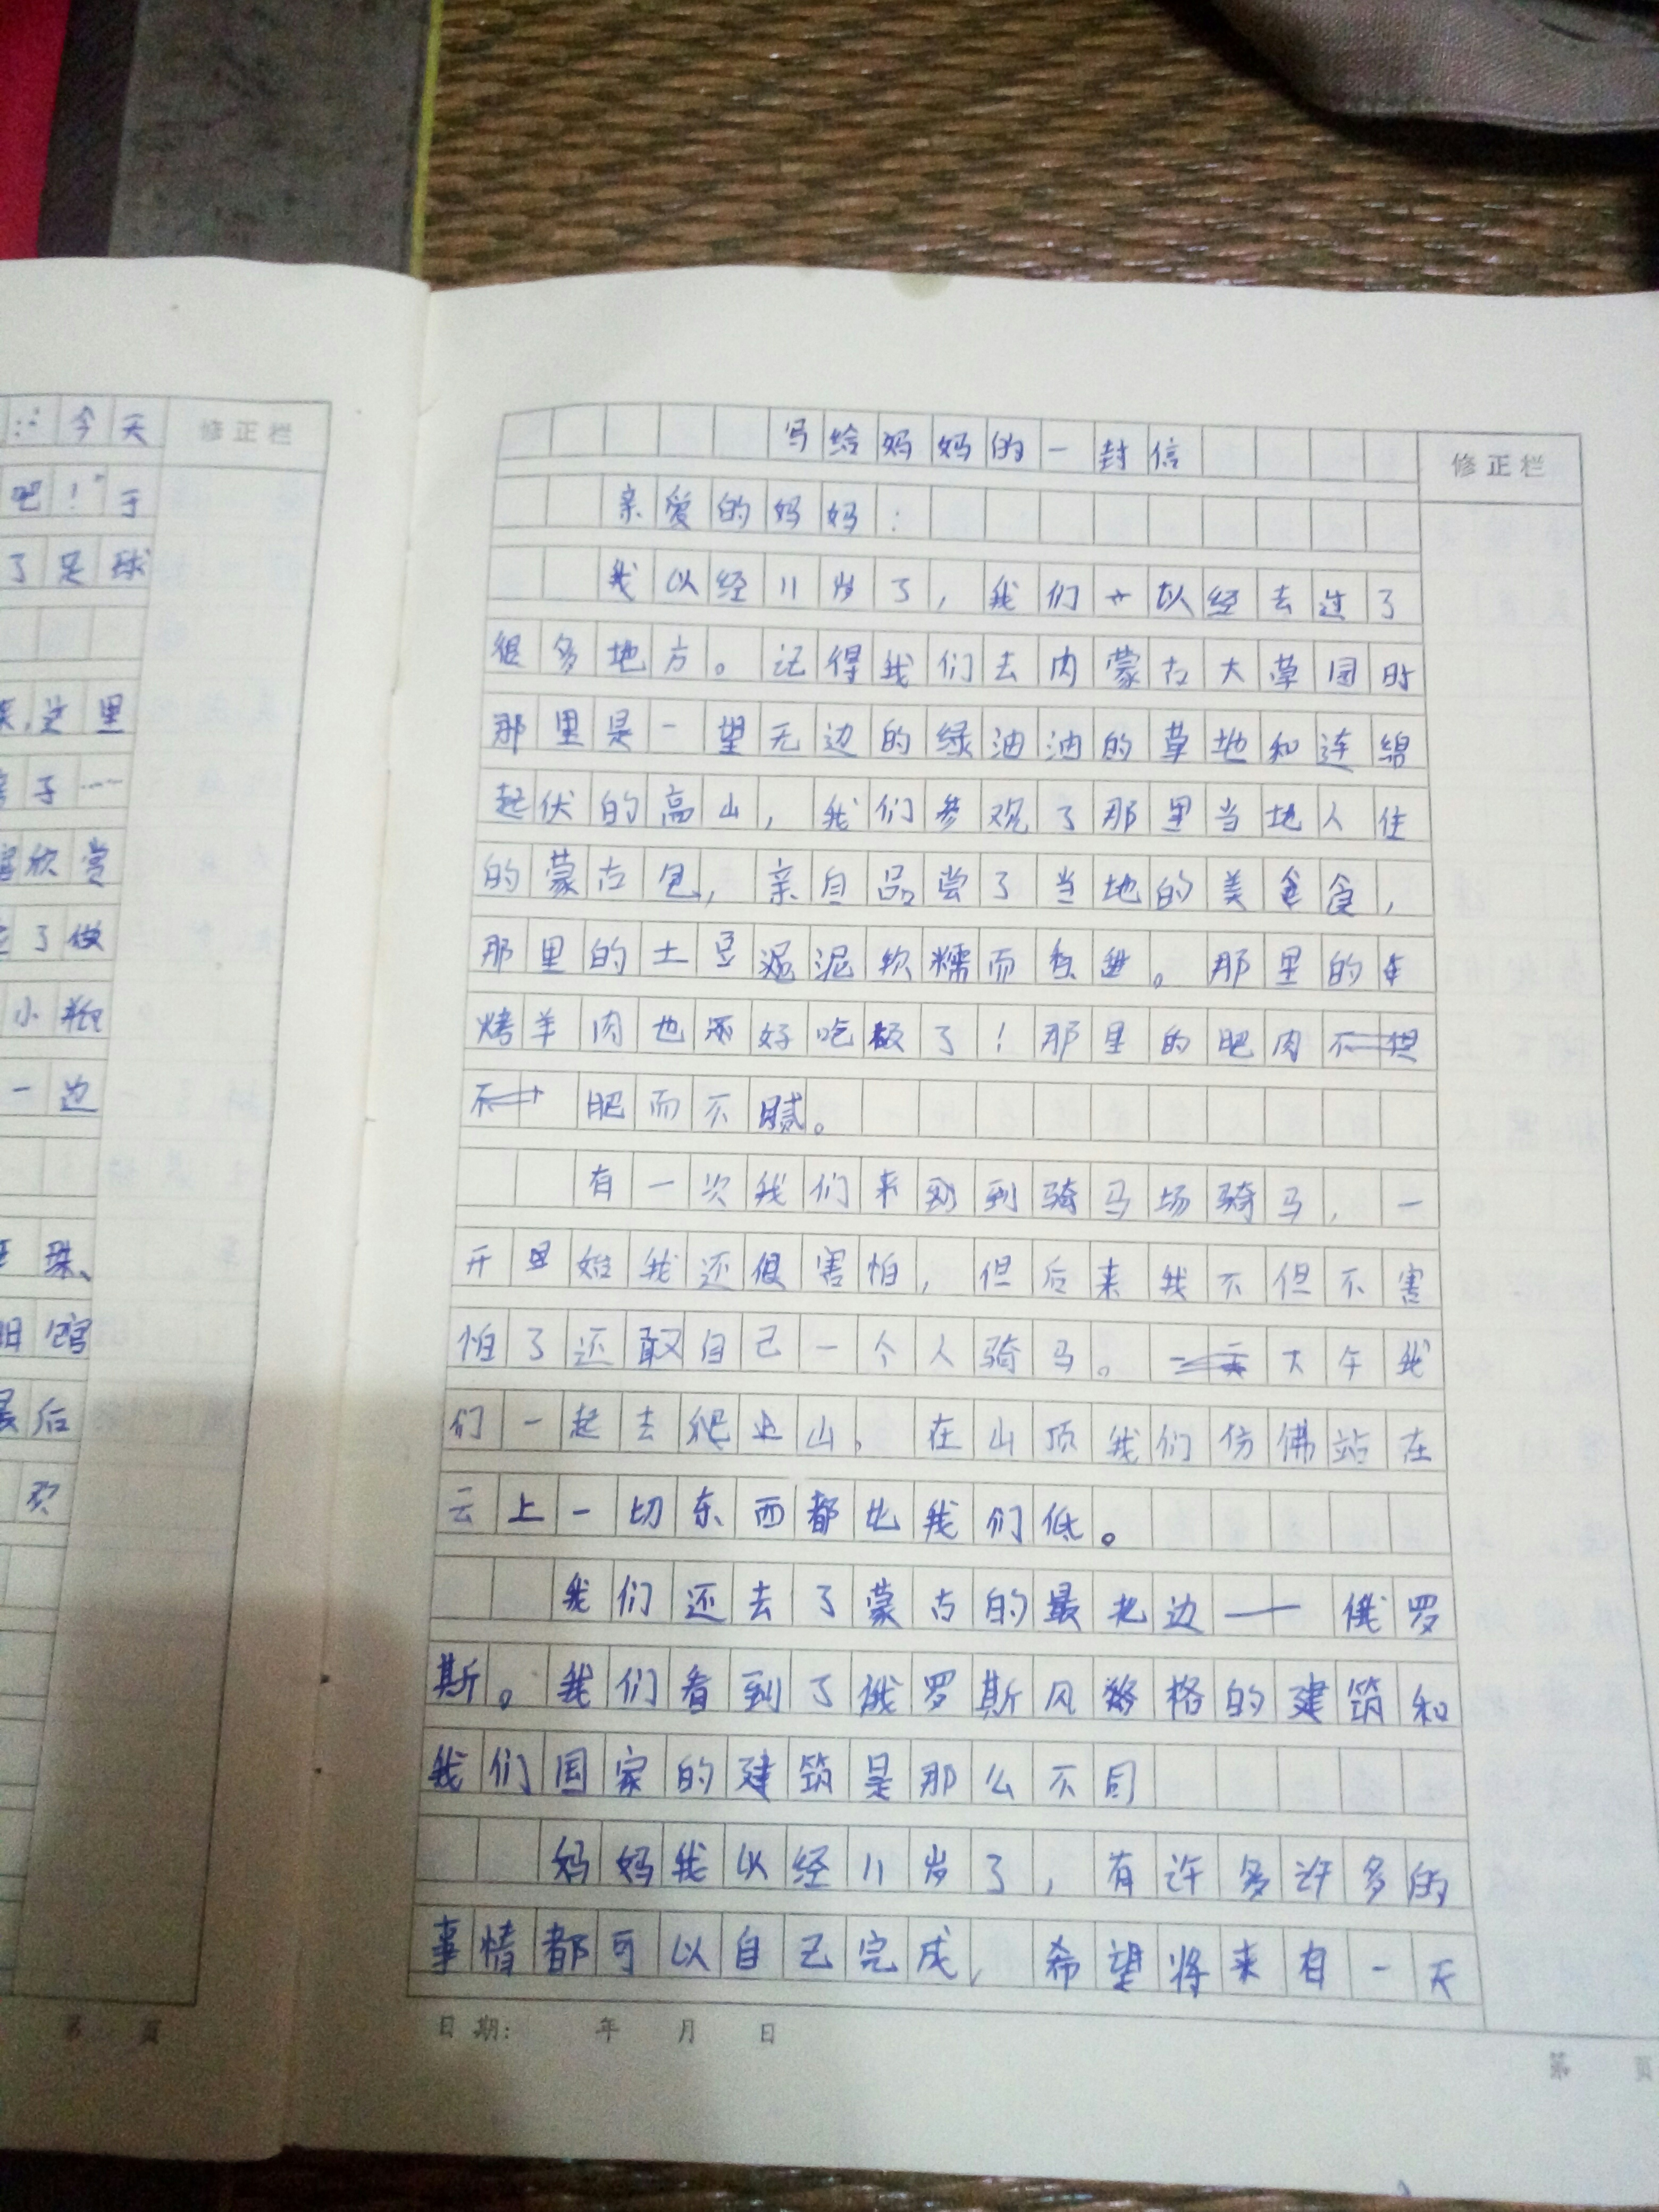 今天
修正栏
吧！”于
了足球
这里
子……
欣赏
了做
小
一边
珠、
馆
最后
写给妈妈的一封信
修正栏
亲爱的妈妈：
我以经11岁了，我们以经去过了
很多地方。记得我们去内蒙古大草园时
那里是一望无边的绿油油的草地和连绵
起伏的高山，我们参观了那里当地人住
的蒙古包，亲自品尝了当地的美食，
那里的土豆泥软糯而香。那里的
烤羊肉也还好吃极了！那里的肥肉
肥而不腻。
有一次我们来到骑马场骑马，一
开始我还很害怕，但后来我不但不害
怕了还敢自己一个人骑马。大午我
们一起去爬山，在山顶我们仿佛站在
云上一切东西都比我们低。
我们还去了蒙古的最北边——俄罗
斯。我们看到了俄罗斯风格的建筑和
我们国家的建筑是那么不同
妈妈我以经11岁了，有许多许多的
事情都可以自己完成，希望将来有一天
第 页
日期： 年 月 日
第 页